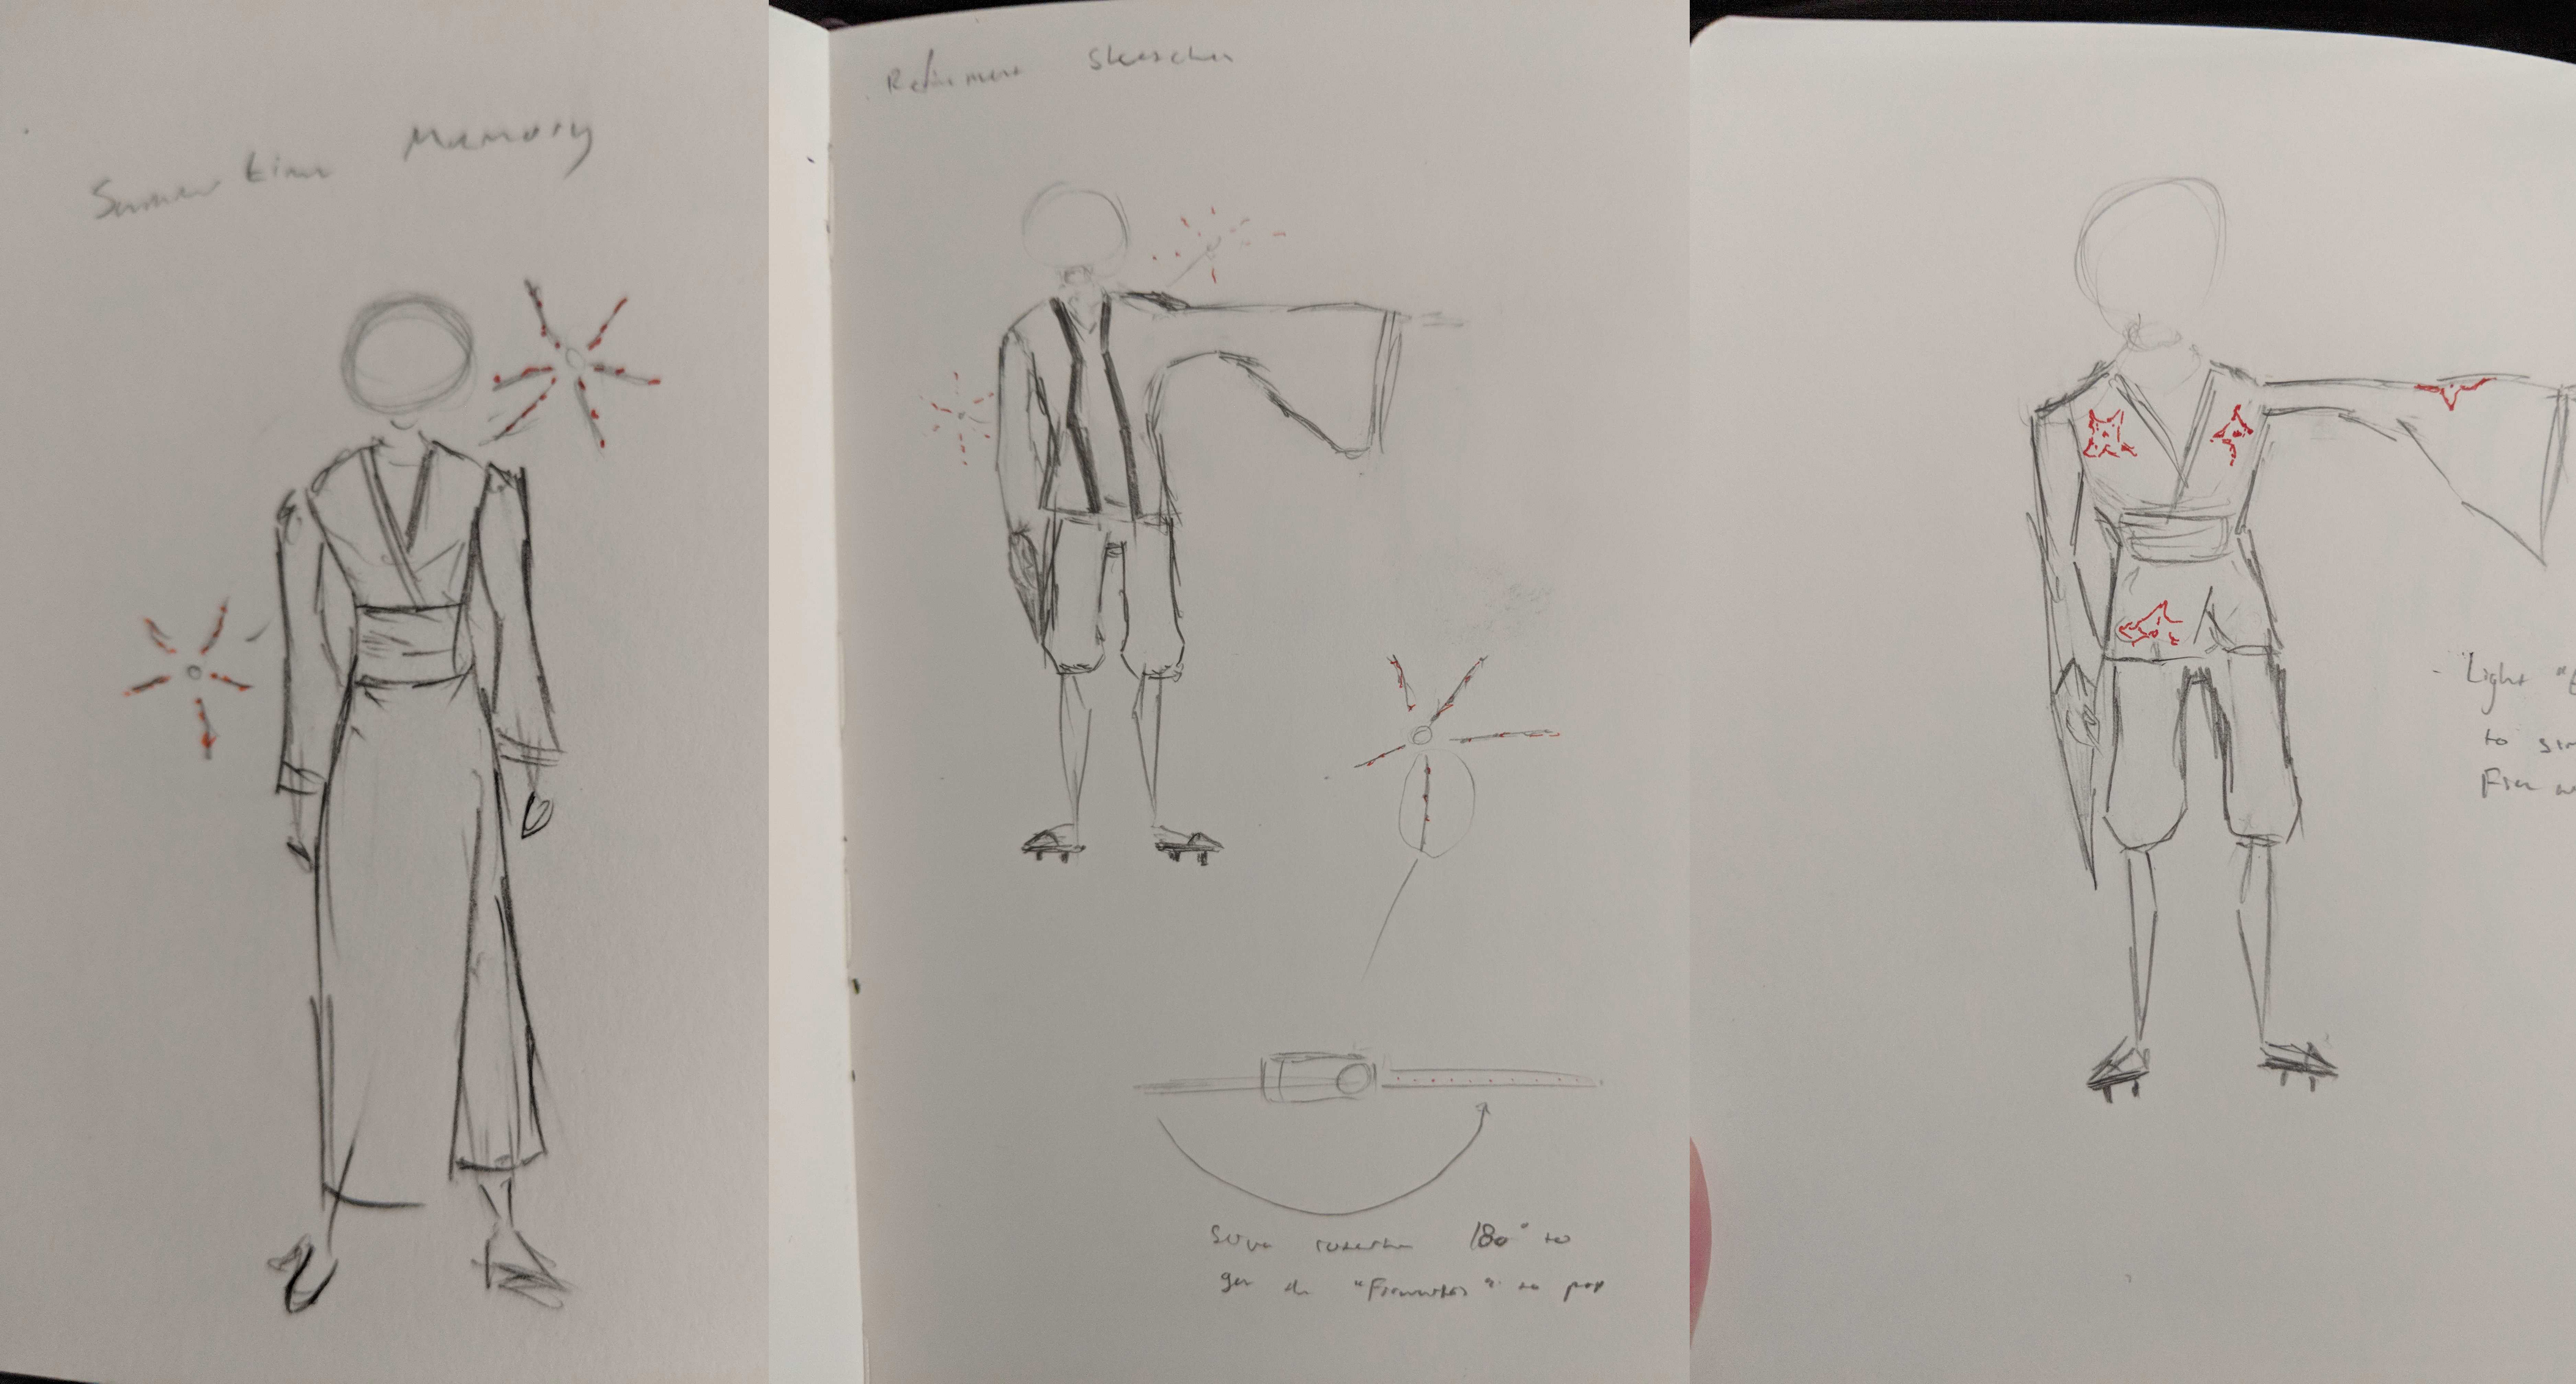 Summer time Memory
Refinement Sketches
Servo rotates 180° to
get the "Fireworks" to pop
- Light "
to
Fire w